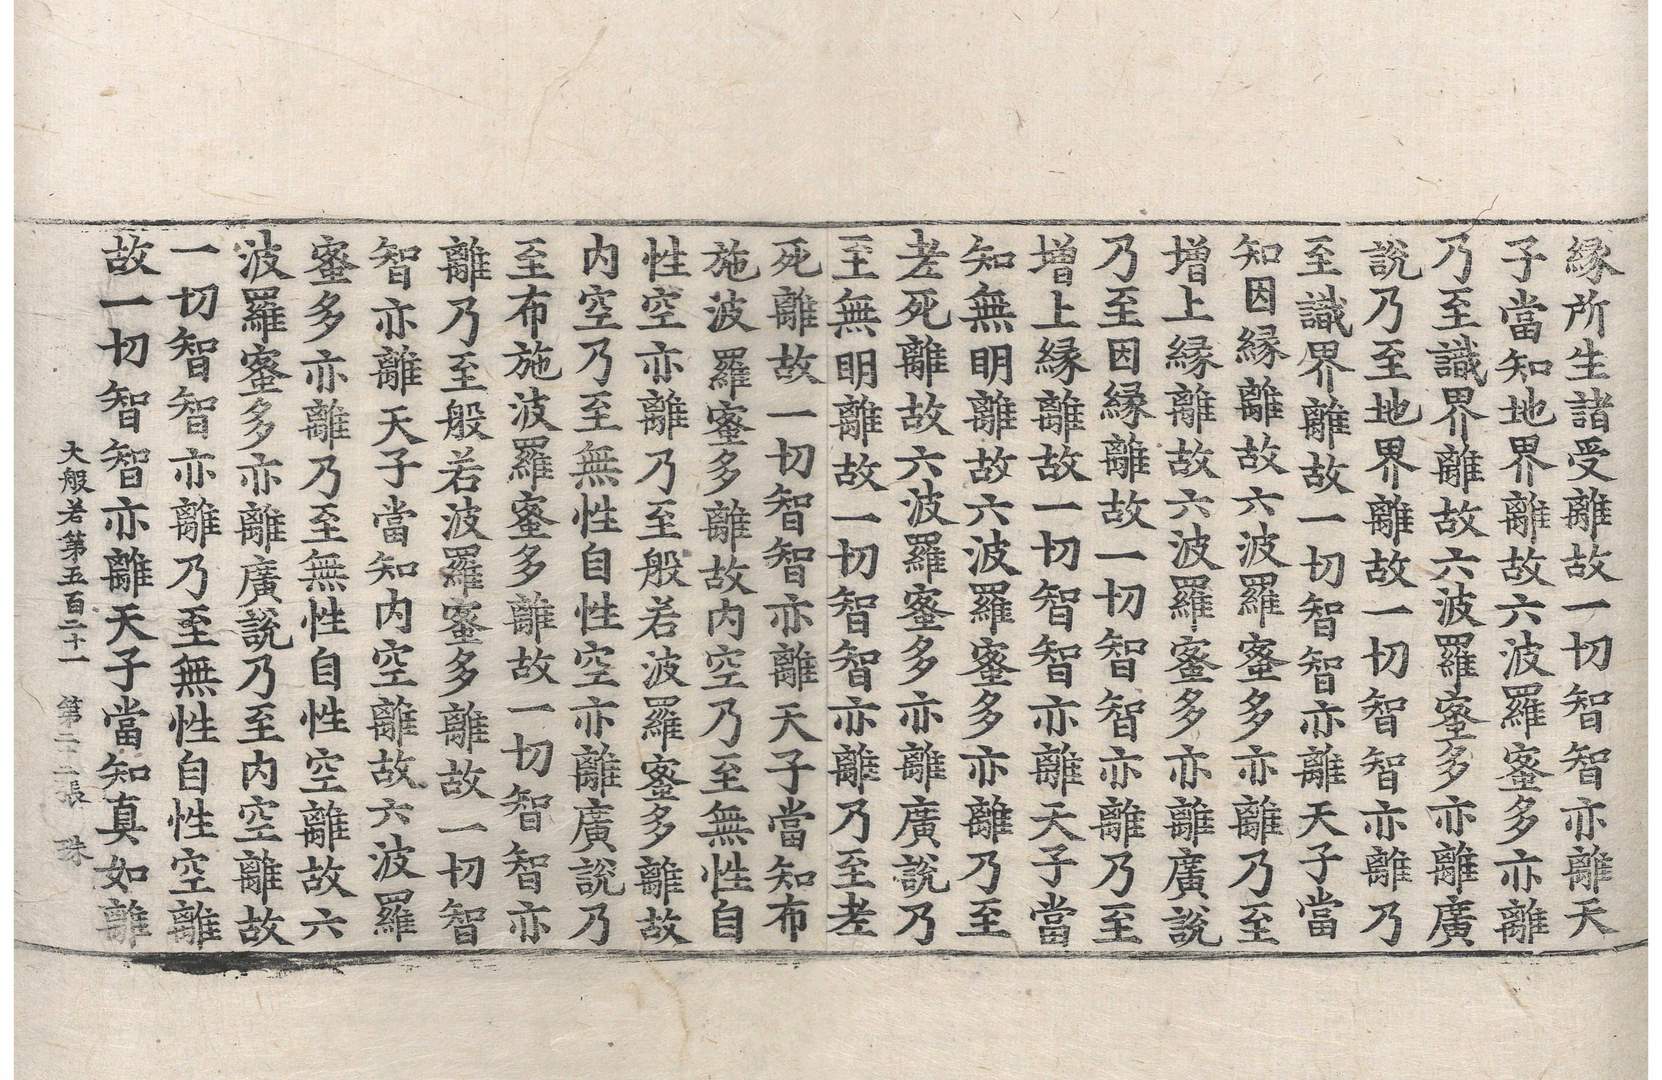 縁所生諸受離故一切智智亦離天
子當知地界離故六波羅蜜多亦離
乃至識界離故六波羅蜜多亦離廣
說乃至地界離故一切智智亦離乃
至識界離故一切智智亦離天子當
知因縁離故六波羅蜜多亦離乃至
增上縁離故六波羅蜜多亦離廣說
乃至因縁離故一切智智亦離乃至
增上縁離故一切智智亦離天子當
知無明離故六波羅蜜多亦離乃至
老死離故六波羅蜜多亦離廣說乃
至無明離故一切智智亦離乃至老
死離故一切智智亦離天子當知布
施波羅蜜多離故内空乃至無性自
性空亦離乃至般若波羅蜜多離故
内空乃至無性自性空亦離廣說乃
至布施波羅蜜多離故一切智智亦
離乃至般若波羅蜜多離故一切智
智亦離天子當知内空離故六波羅
蜜多亦離乃至無性自性空離故六
波羅蜜多亦離廣說乃至内空離故
一切智智亦離乃至無性自性空離
故一切智智亦離天子當知真如離
大般若第五百二十一 第二十二張 珠